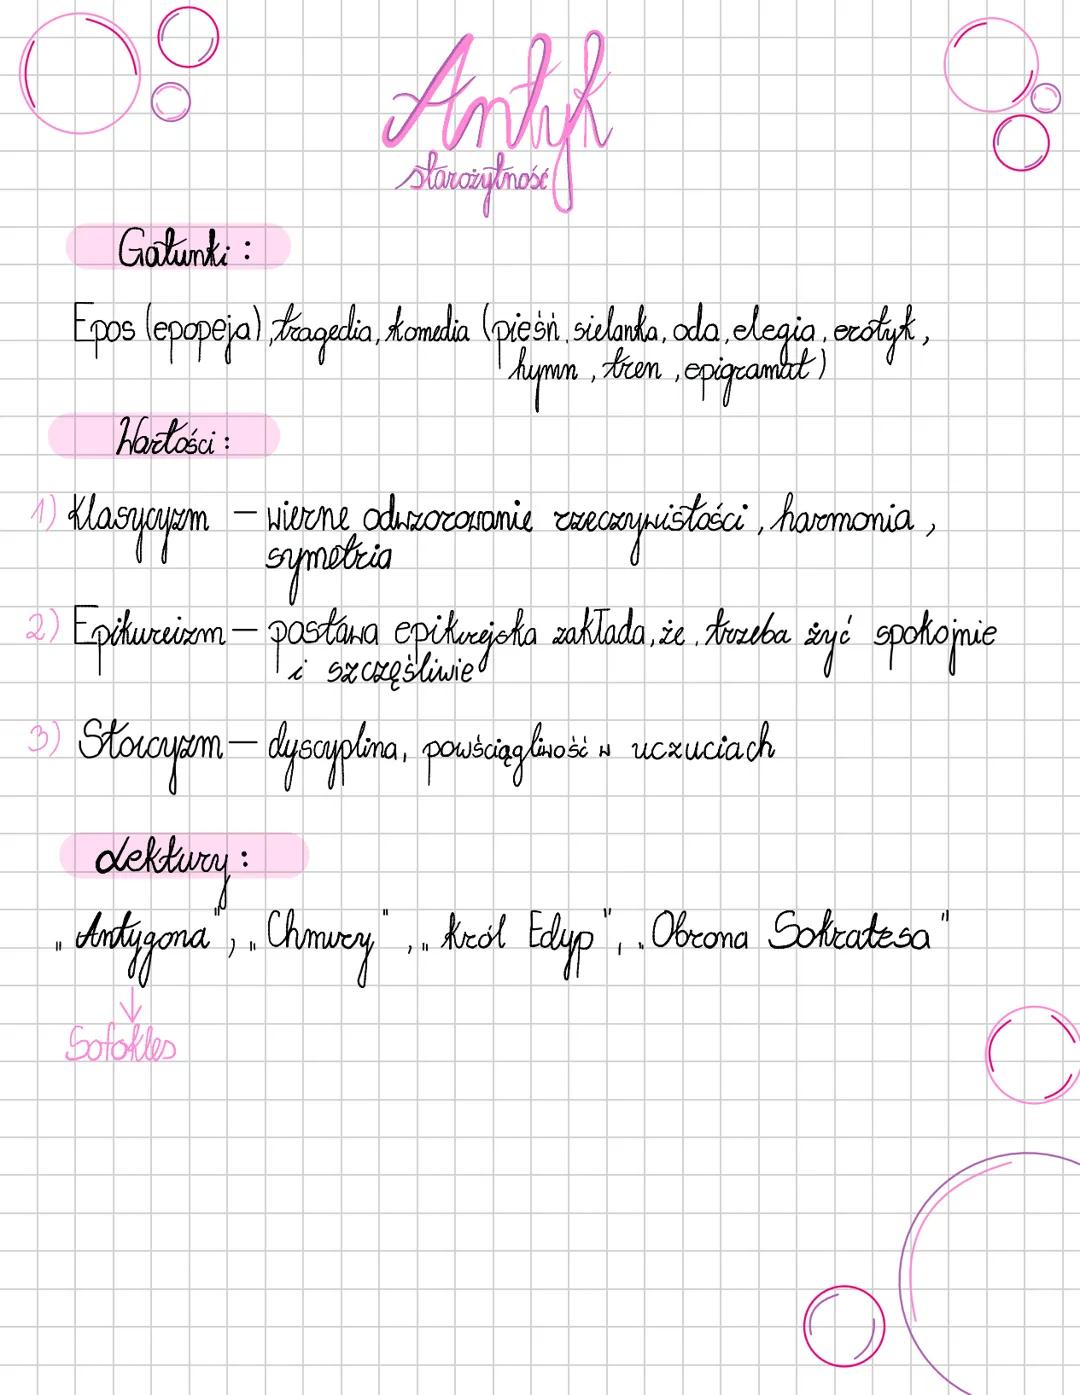 Antyk
starożytność
Gatunki :
Epos (epopeja), tragedia, komedia (pieśń, sielanka, oda, elegia, erotyk,
hymn, tren, epigramat)
Wartości :
1) Klasycyzm – wierne odwzorowanie rzeczywistości, harmonia,
symetria
2) Epikureizm – postawa epikurejska zakłada, że, trzeba żyć spokojnie
i szczęśliwie
3) Stoicyzm – dyscyplina, powściągliwość w uczuciach
Lektury :
„Antygona", „Chmury", „Król Edyp", „Obrona Sokratesa"
↓
Sofokles